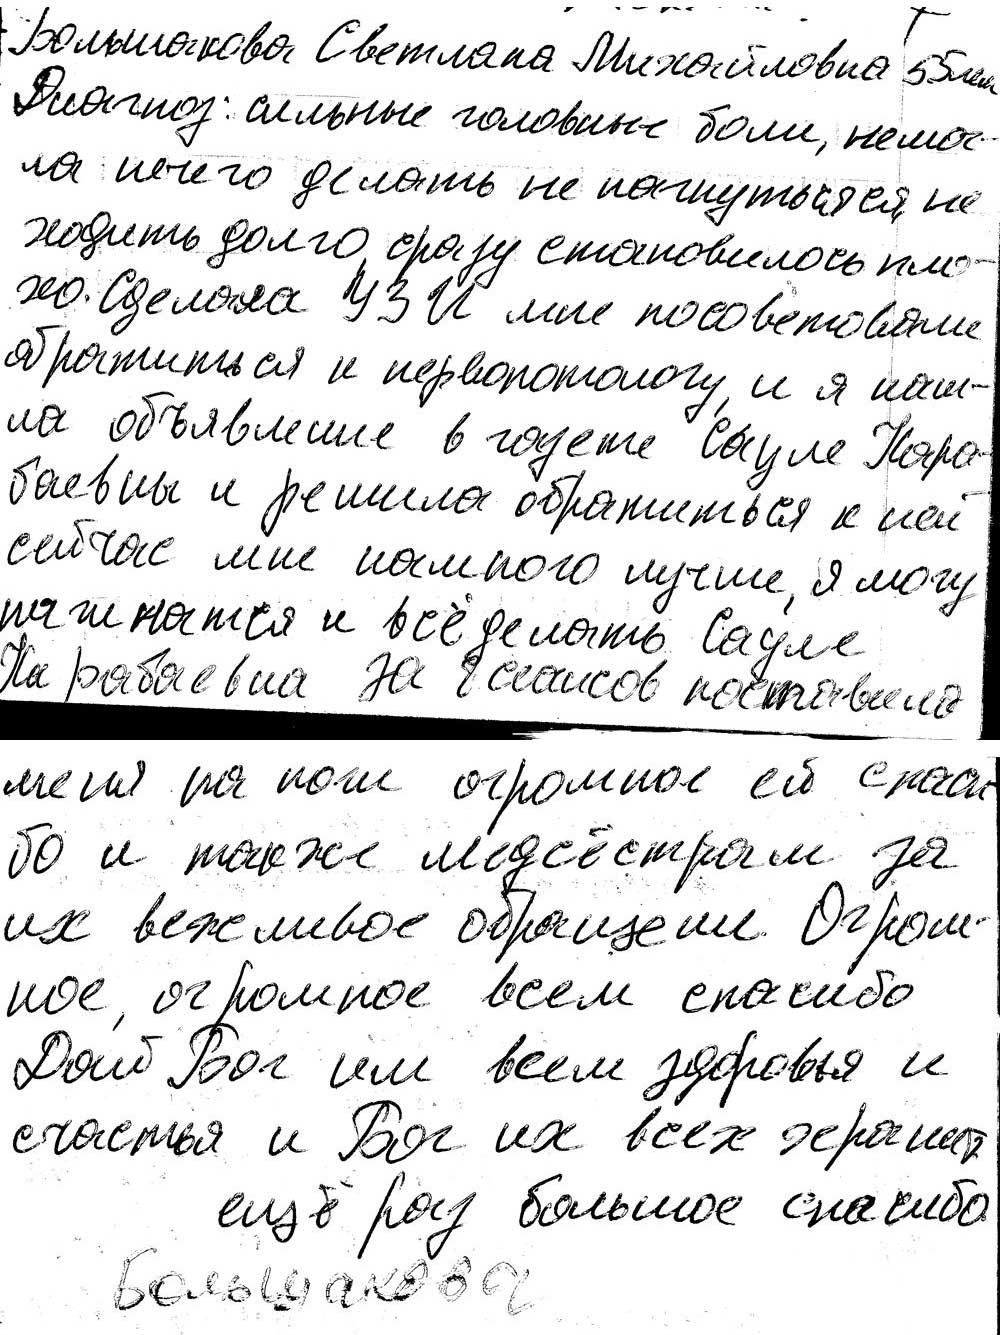 Большакова Светлана Михайловна 55 лет
Диагноз: сильные головные боли, немог-
ла нечего делать не нагнуться, не
ходить долго, сразу становилось пло-
хо. Сделала УЗИ мне посоветовали
обратиться к нервопотологу, и я наш-
ла объявление в газете Сауле Кара-
баевны и решила обратиться к ней
сейчас мне намного лучше, я могу
нагинатся и всё делать Сауле
Карабаевна за 8 сеансов поставила
меня на ноги огромное ей спаси-
бо и также медсёстрам за
их вежливое обращение. Огром-
ное, огромное всем спасибо
Дай Бог им всем здоровья и
счастья и Бог их всех хранит
ещё раз большое спасибо
Большакова